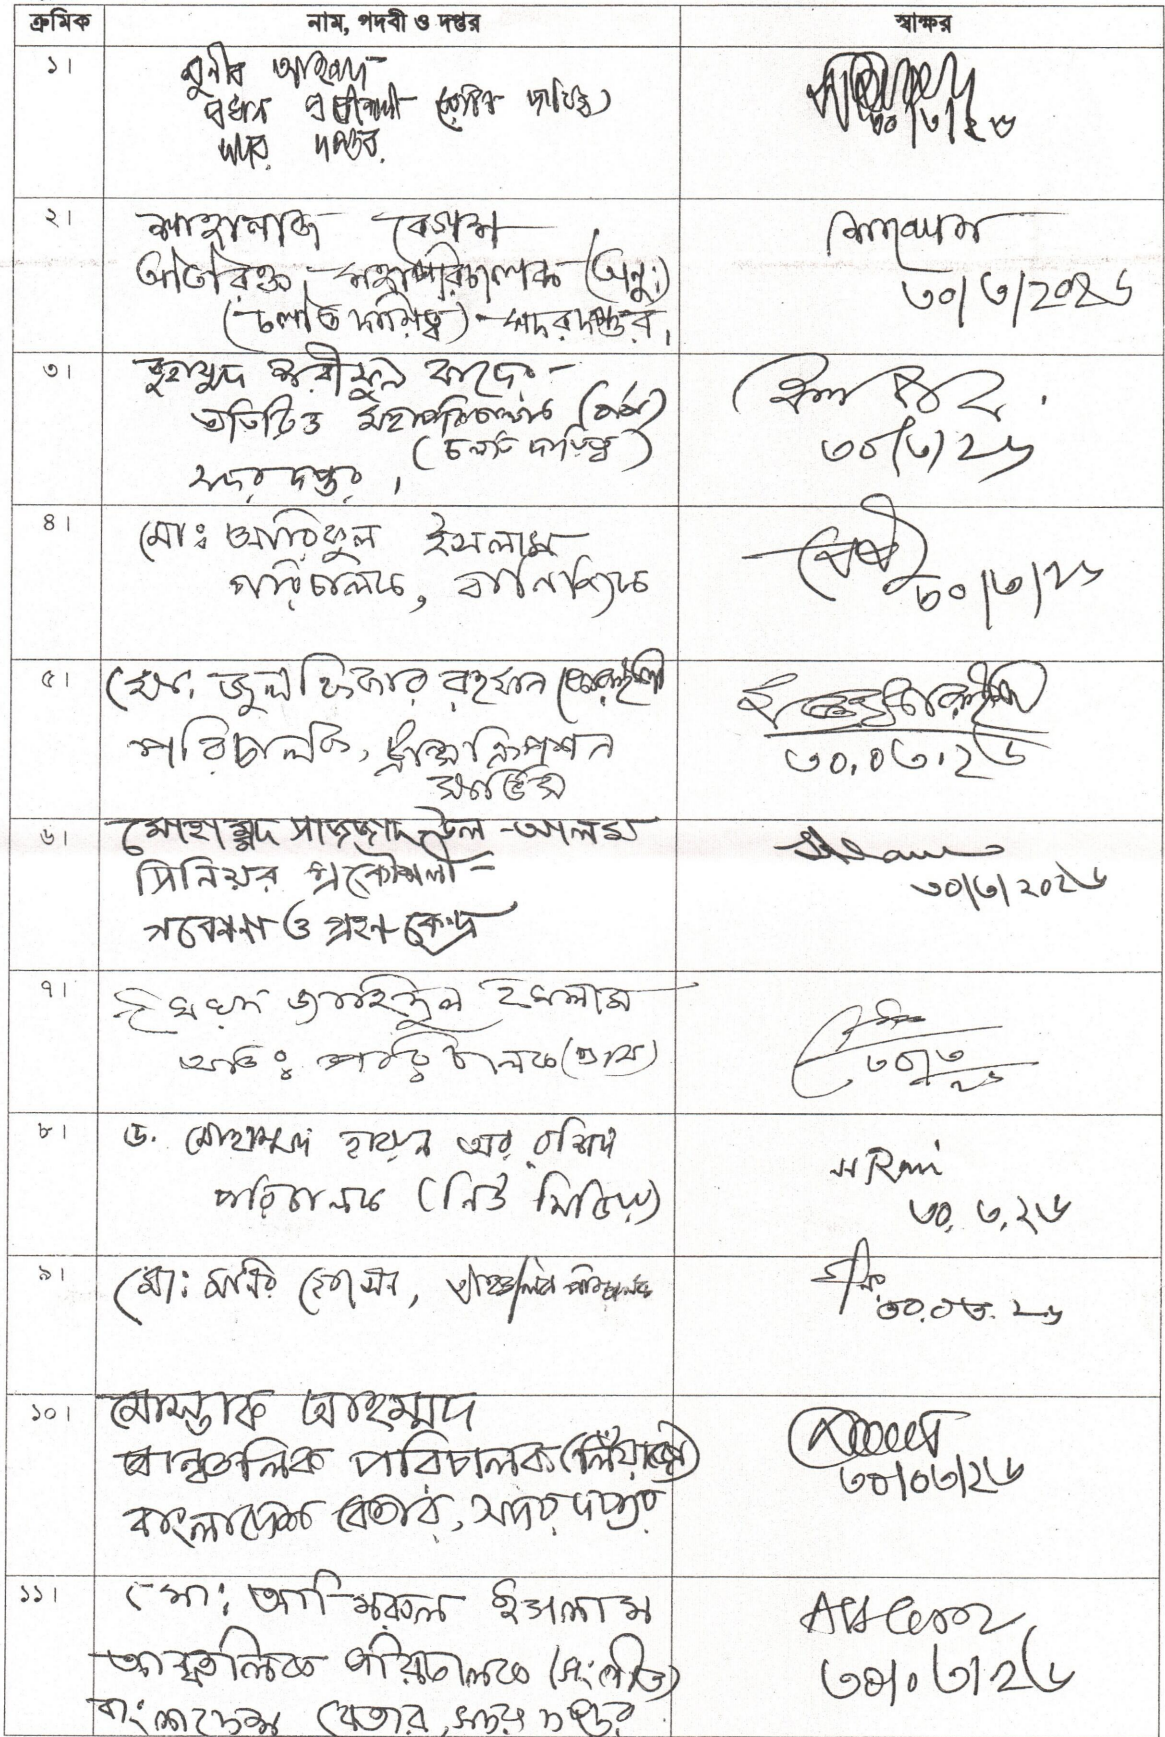 ক্রমিক নাম, পদবী ও দপ্তর স্বাক্ষর
১। মুনীর আহমদ
প্রধান প্রকৌশলী (চলতি দায়িত্ব)
সদর দপ্তর।
৩০/৩/২৬
২। শাহানাজ বেগম
অতিরিক্ত মহাপরিচালক (অনু:)
(চলতি দায়িত্ব) সদর দপ্তর।
৩০/৩/২০২৬
৩। মুহাম্মদ শরীফুল কাদের
অতিরিক্ত মহাপরিচালক (বার্তা)
(চলতি দায়িত্ব)
সদর দপ্তর।
৩০/৩/২৬
৪। মোঃ আরিফুল ইসলাম
পরিচালক, বাণিজ্যিক
৩০/৩/২৬
৫। মো. জুলফিকার রহমান কোরাইশী
পরিচালক, ট্রান্সক্রিপশন
সার্ভিস
৩০.০৩.২৬
৬। মোহাম্মদ সাজ্জাদ উল-আলম
সিনিয়র প্রকৌশলী
গবেষণা ও গ্রহণ কেন্দ্র
৩০/৩/২০২৬
৭। জাহিদুল ইসলাম
অতিঃ পরিচালক
৩০/৩
২৬
৮। ড. মোহাম্মদ হারুন অর রশিদ
পরিচালক (নিউ মিডিয়া)
৩০.৩.২৬
৯। মো: মনির হোসেন, আঞ্চলিক পরিচালক
৩০.০৩.২৬
১০। মোস্তাক আহম্মদ
আঞ্চলিক পরিচালক (লিঁয়াজো)
বাংলাদেশ বেতার, সদর দপ্তর
৩০/০৩/২৬
১১। মো: আমিরুল ইসলাম
আঞ্চলিক পরিচালক (সংগীত)
বাংলাদেশ বেতার, সদর দপ্তর
৩০/০৩/২৬